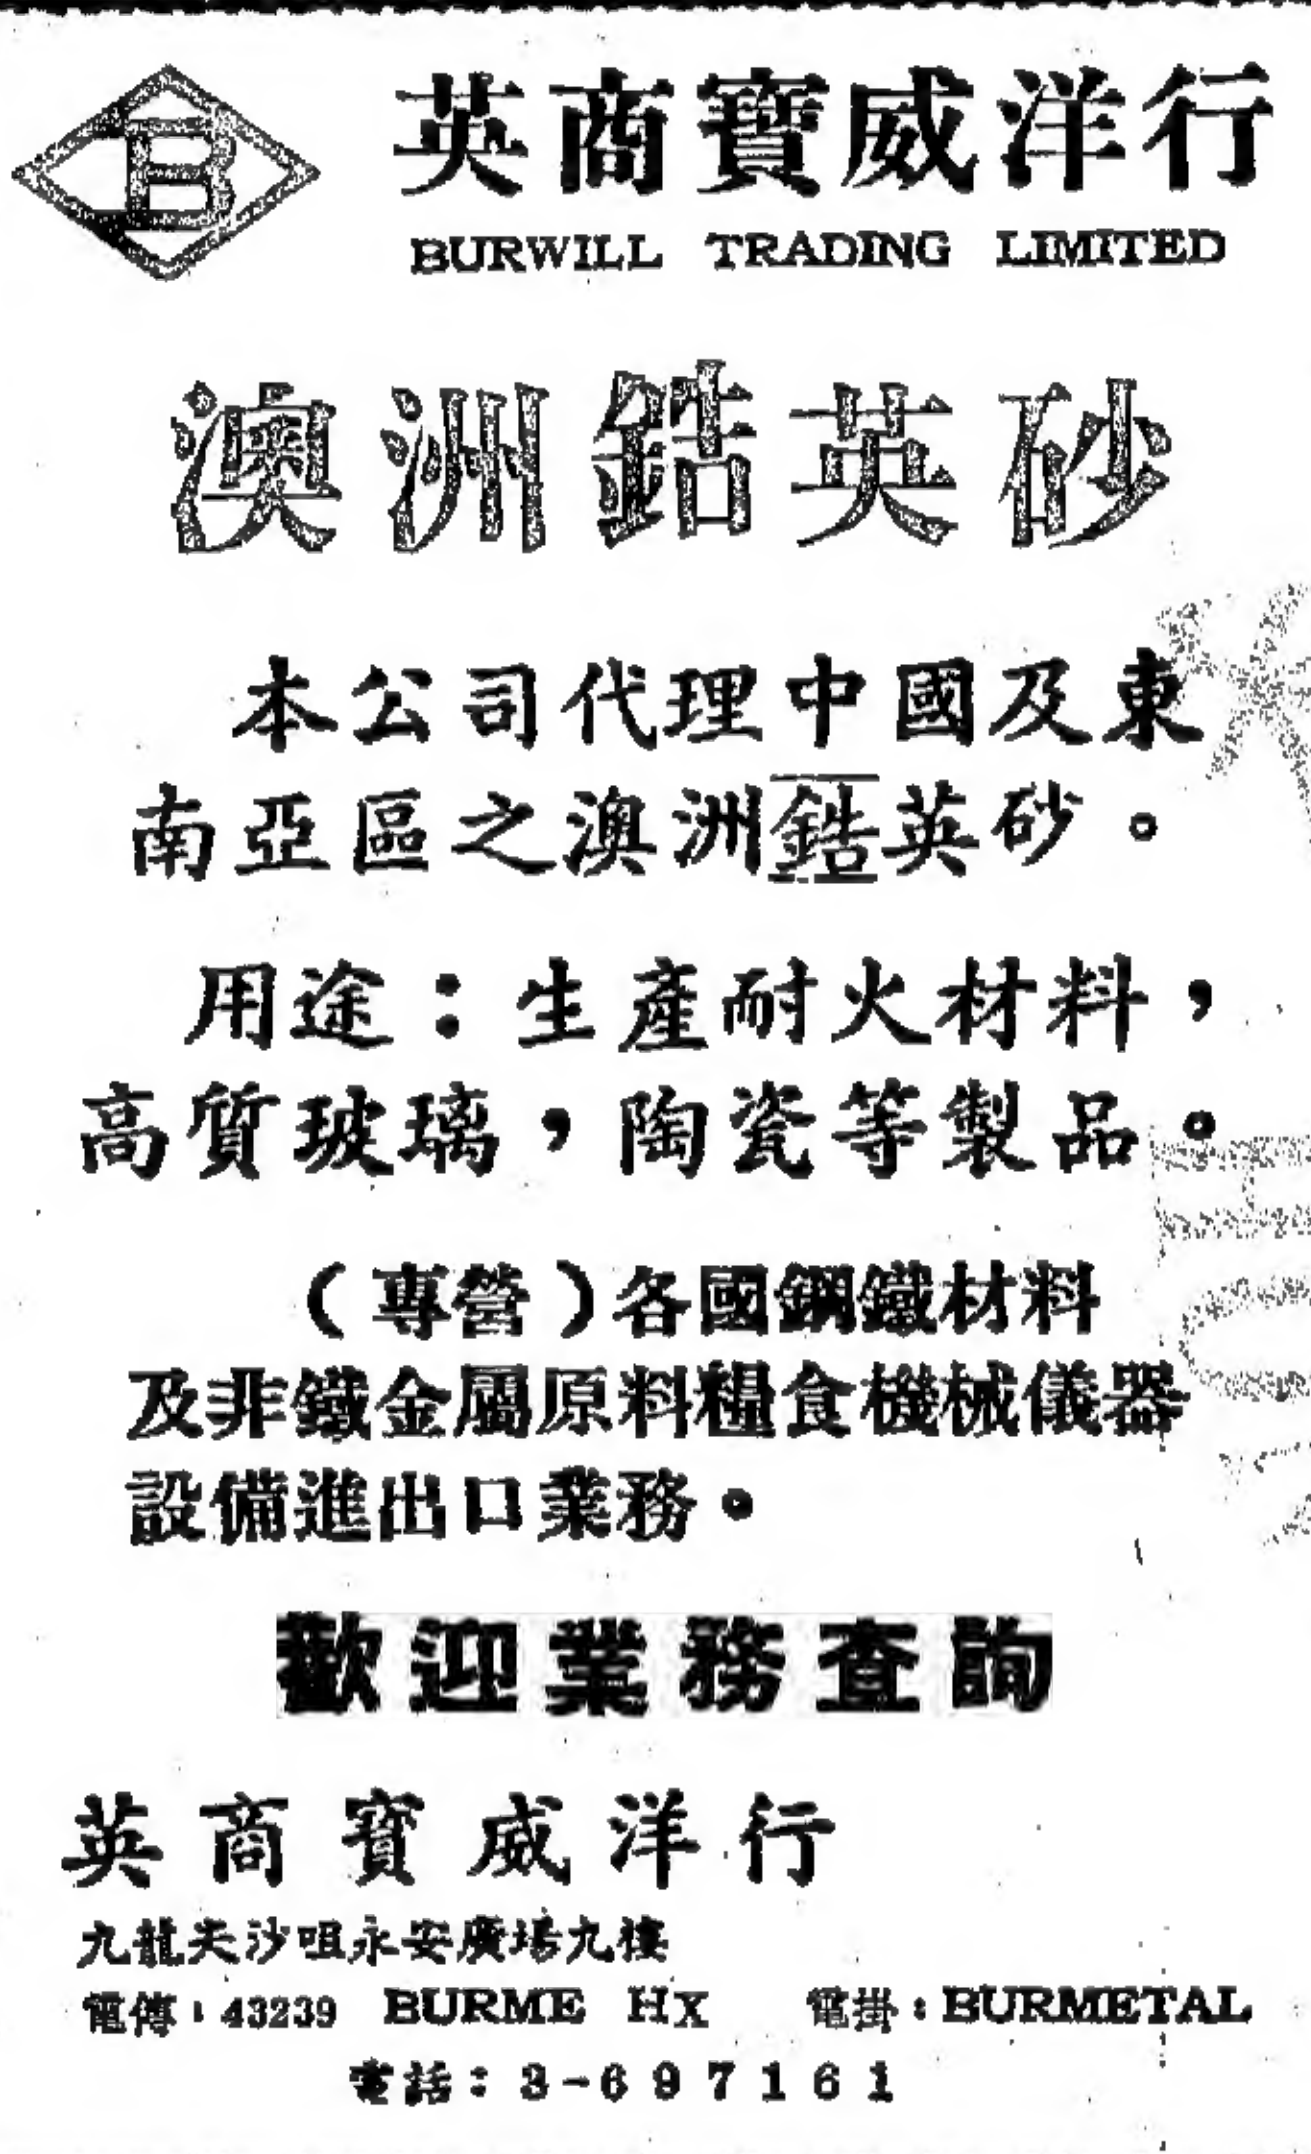 B
英商寶威洋行
BURWILL TRADING LIMITED
澳洲鋯英砂
本公司代理中國及東
南亞區之澳洲鋯英砂。
用途：生產耐火材料，
高質玻璃，陶瓷等製品。
（專營）各國鋼鐵材料
及非鐵金屬原料糧食機械儀器
設備進出口業務。
歡迎業務查詢
英商寶威洋行
九龍尖沙咀永安廣場九樓
電傳：43239 BURME HX 電掛：BURMETAL
電話：3-697161